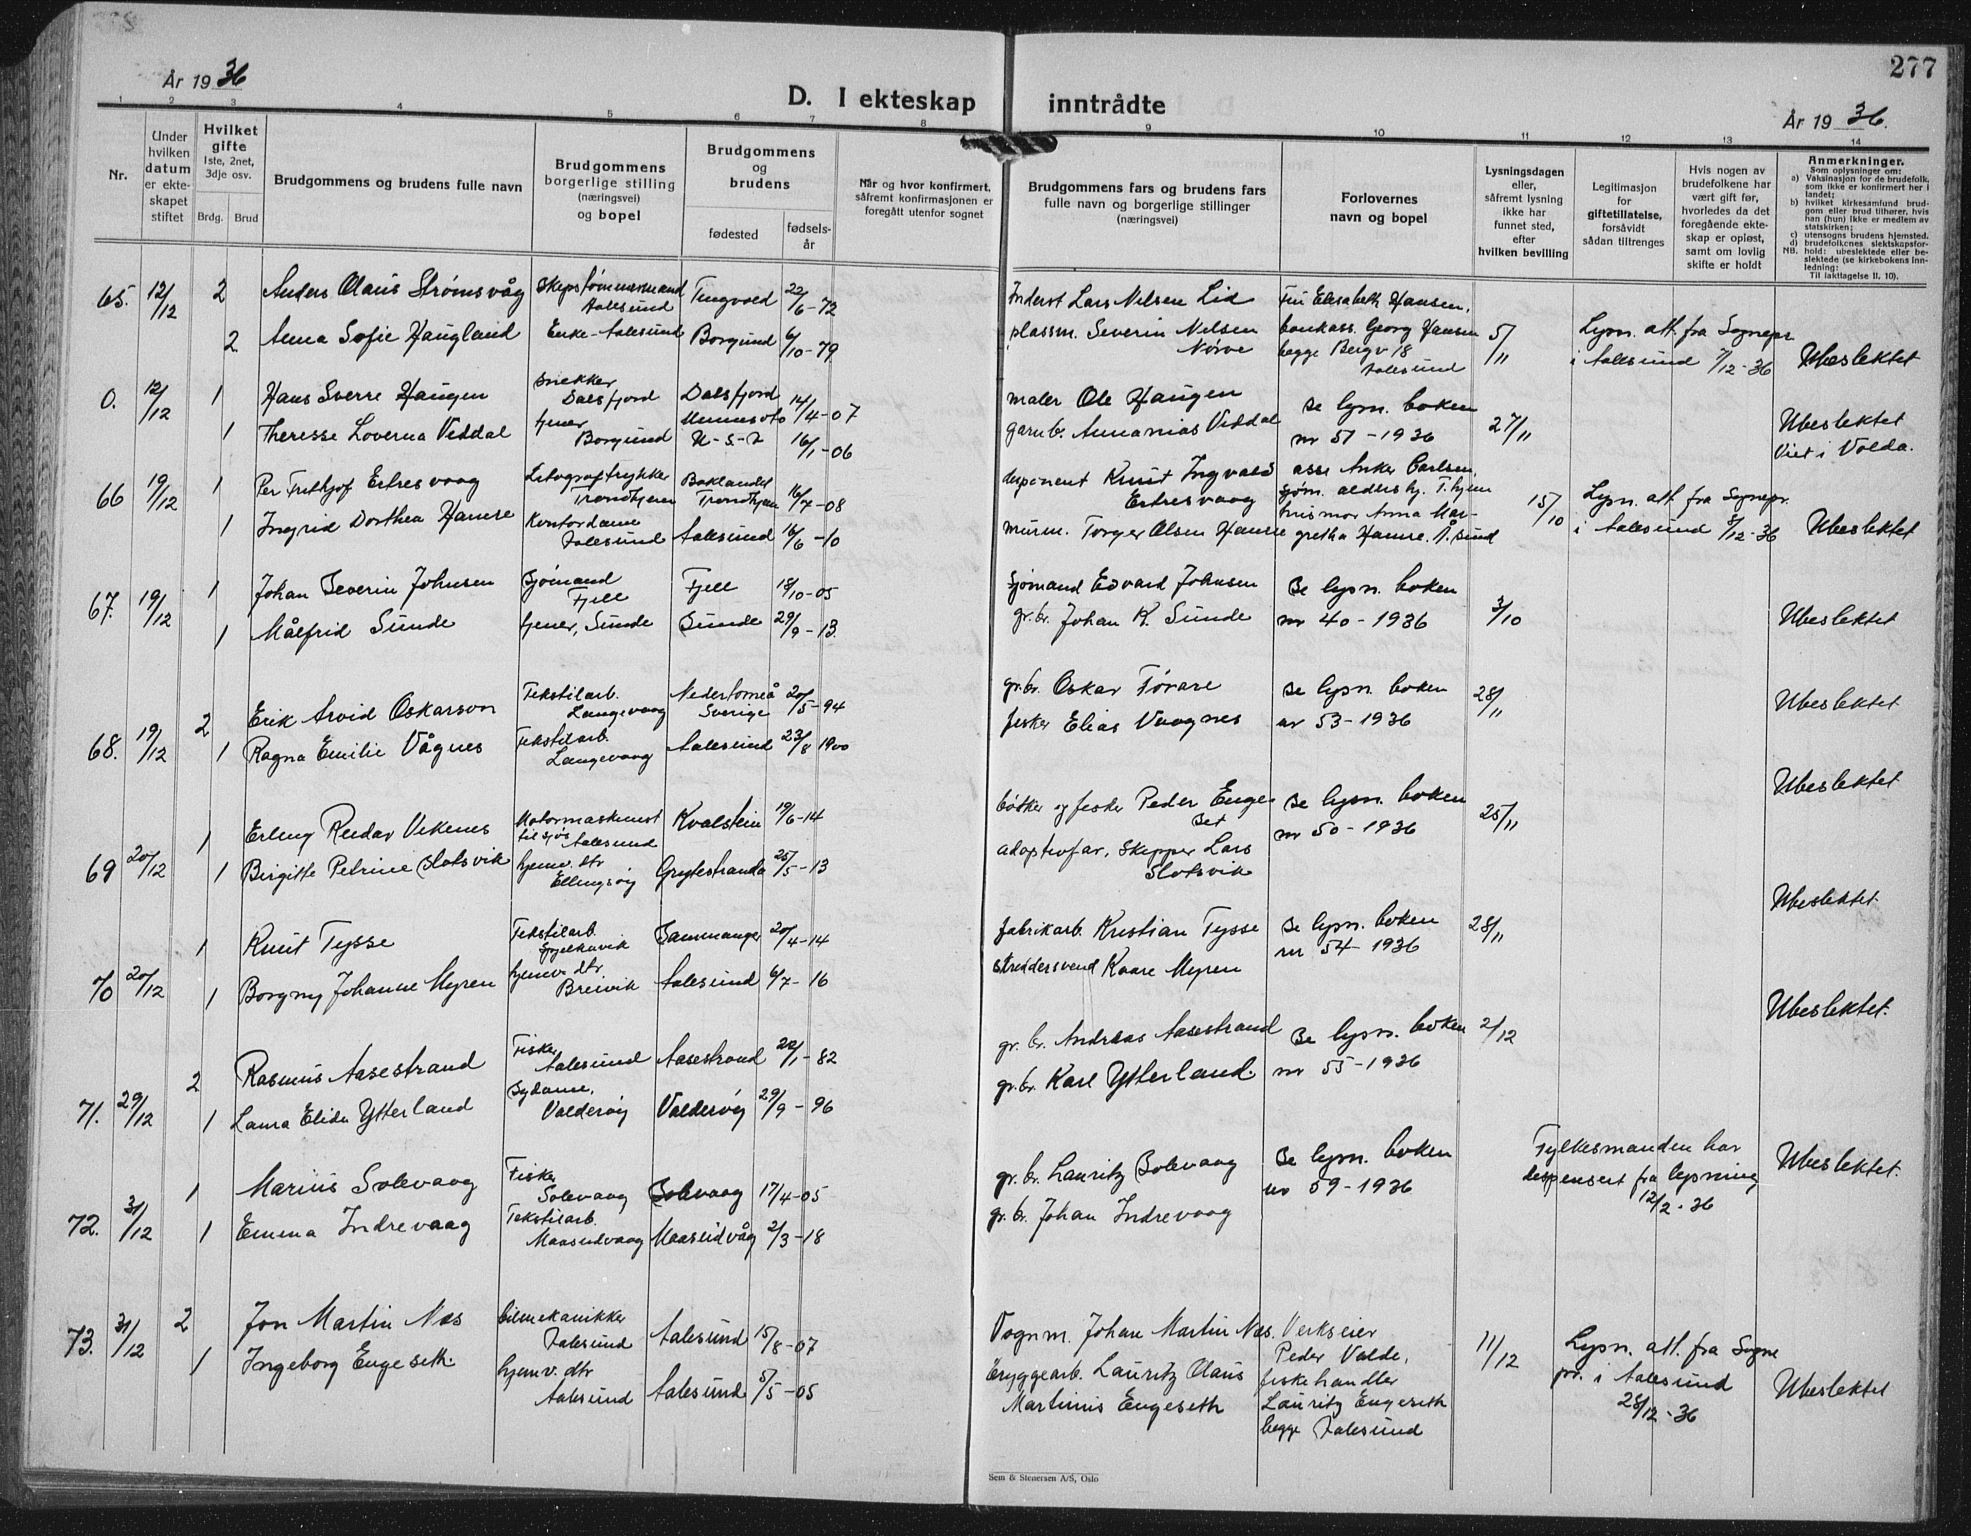 År 1936
277
D. I ekteskap inntrådte
År 1936.
1 2 3 4 5 6 7 8 9 10 11 12 13 14
Nr.
Under hvilken datum er ekteskapet stiftet
Hvilket gifte
1ste, 2net, 3dje osv.
Brdg. Brud
Brudgommens og brudens fulle navn
Brudgommens borgerlige stilling (næringsvei) og bopel
Brudgommens og brudens
fødested
fødselsår
Når og hvor konfirmert, såfremt konfirmasjonen er foregått utenfor sognet
Brudgommens fars og brudens fars fulle navn og borgerlige stillinger (næringsvei)
Forlovernes navn og bopel
Lysningsdagen eller, såfremt lysning ikke har funnet sted, efter hvilken bevilling
Legitimasjon for giftetillatelse, forsåvidt sådan tiltrenges
Hvis nogen av brudefolkene har vært gift før, hvorledes da det foregående ekteskap er opløst, samt om lovlig skifte er holdt
Anmerkninger.
Som oplysninger om:
a) Vaksinasjon for de brudefolk, som ikke er konfirmert her i landet;
b) hvilket kirkesamfund brudgom eller brud tilhører, hvis han (hun) ikke er medlem av statskirken;
c) utensogns brudens hjemsted.
d) brudefolkenes slektskapsforhold: ubeslektede eller beslektede (se kirkebokens innledning:
NB. Til iakttagelse II, 10).
65. 12/12 2 Anders Olaus Strømsvåg Skipstømmermand Aalesund Tingvold 22/6-72 Inderst Lars Nilsen Lid Fru Elisabeth Hansen,
2 Anna Sofie Haugland Enke - Aalesund Borgund 6/10-79 plassm. Severin Nilsen Nørve bankass. Georg Hansen begge Bergv 18 Aalesund 5/11 Lysn. att. fra Sognepr. i Aalesund 7/12-36 Ubeslektet
0. 12/12 1 Hans Sverre Haugen snekker Dalsfjord Dalsfjord 14/4-07 maler Ole Haugen Se lysn. boken
1 Theresse Loverna Viddal tjener Borgund Minnesota U-S-A 16/1-06 garnb. Annanias Viddal nr 51-1936 27/11 Ubeslektet Viet i Volda.
66 19/12 1 Per Fridtjof Ertresvaag Litograftrykker Trondhjem Baklandet Trondhjem 16/7-08 disponent Knut Ingvald Ertresvaag ass. Anker Carlsen, sjøm. aldershj. T.hjem
1 Ingrid Dorthea Hamre Kontordame Aalesund Aalesund 16/6-10 murm. Torger Olsen Hamre husmor Anna Margretha Hamre. Å.sund 15/10 Lysn. att. fra Sognepr. i Aalesund 8/12-36 Ubeslektet
67. 19/12 1 Johan Severin Johnsen Sjømand Fjell Fjell 18/10-05 sjømand Edvard Johnsen Se lysn. boken
1 Målfrid Sunde tjener, Sunde Sunde 29/9-13. gr.br. Johan K. Sunde nr 40-1936 3/10 Ubeslektet
68. 19/12 2 Erik Arvid Oskarson Tekstilarb. Langevaag Nedertorneå Sverige 20/5-94 gr.br. Oskar Törare Se lysn. boken
1 Ragna Emilie Vågnes Tekstilarb. Langevaag Aalesund 23/8 1900 fisker Elias Vaagnes nr 53-1936 28/11 Ubeslektet
69 20/12 1 Erling Reidar Vikenes Motormaskinist til sjøs Aalesund Kvalstein 19/6-14 bøtker og fisker Peder Engeset Se lysn. boken
1 Birgitte Petrine Slotsvik hjemv. dtr Ellingsøy Grytestranda 25/5-13 adoptivfar, Skipper Lars Slotsvik nr 50-1936 25/11 Ubeslektet
70 20/12 1 Knut Tysse Tekstilarb Spjelkavik Sammanger 20/4-14 fabrikarb. Kristian Tysse Se lysn. boken
1 Borgny Johanne Myren hjemv. dtr. Breivik Aalesund 6/7-16 skreddersvend Kaare Myren nr 54-1936 28/11 Ubeslektet
71. 29/12 2 Rasmus Aasestrand Fisker Aalesund Aasestrand 22/1-82 gr. br. Andreas Aasestrand Se lysn. boken
1 Laura Elida Ytterland Sydame, Valderøy Valderøy 29/9-96 gr.br. Karl Ytterland. nr 55-1936 2/12 Ubeslektet.
72. 31/12 1 Marius Solevaag Fisker Solevaag Solevaag 17/4-05 gr. br. Lauritz Solevaag Se lysn. boken
1 Emma Indrevaag Tekstilarb. Maaseidvaag Maaseidvåg 2/3-18 gr. br. Johan Indrevaag nr 59-1936 Fylkesmanden har dispensert fra lysning 12/2-36 Ubeslektet.
73. 31/12 2 Jon Martin Nes bilmekanikker Aalesund Aalesund 15/8-07 Vognm. Johan Martin Nes. Verkseier Peder Valde,
1 Ingeborg Engeseth. hjemv. dtr Aalesund Aalesund 5/5-05 bryggearb. Lauritz Olaus Martinus Engeseth fiskehandler Lauritz Engeseth begge Aalesund 11/12 Lysn. att. fra Sognepr. i Aalesund 28/12-36 Ubeslektet
Sem & Stenersen A/S, Oslo